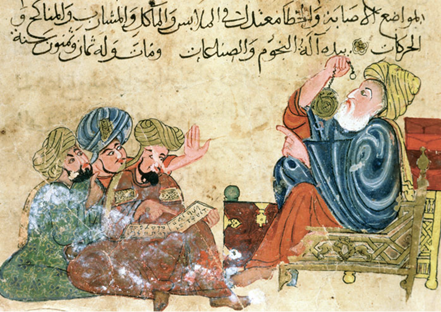 المواضع الاصابة والخطا معتدلا في الملابس والمآكل والمشارب والمناكح و
الحركات بيده آلة النجوم ومات وله ثمان وستون سنة